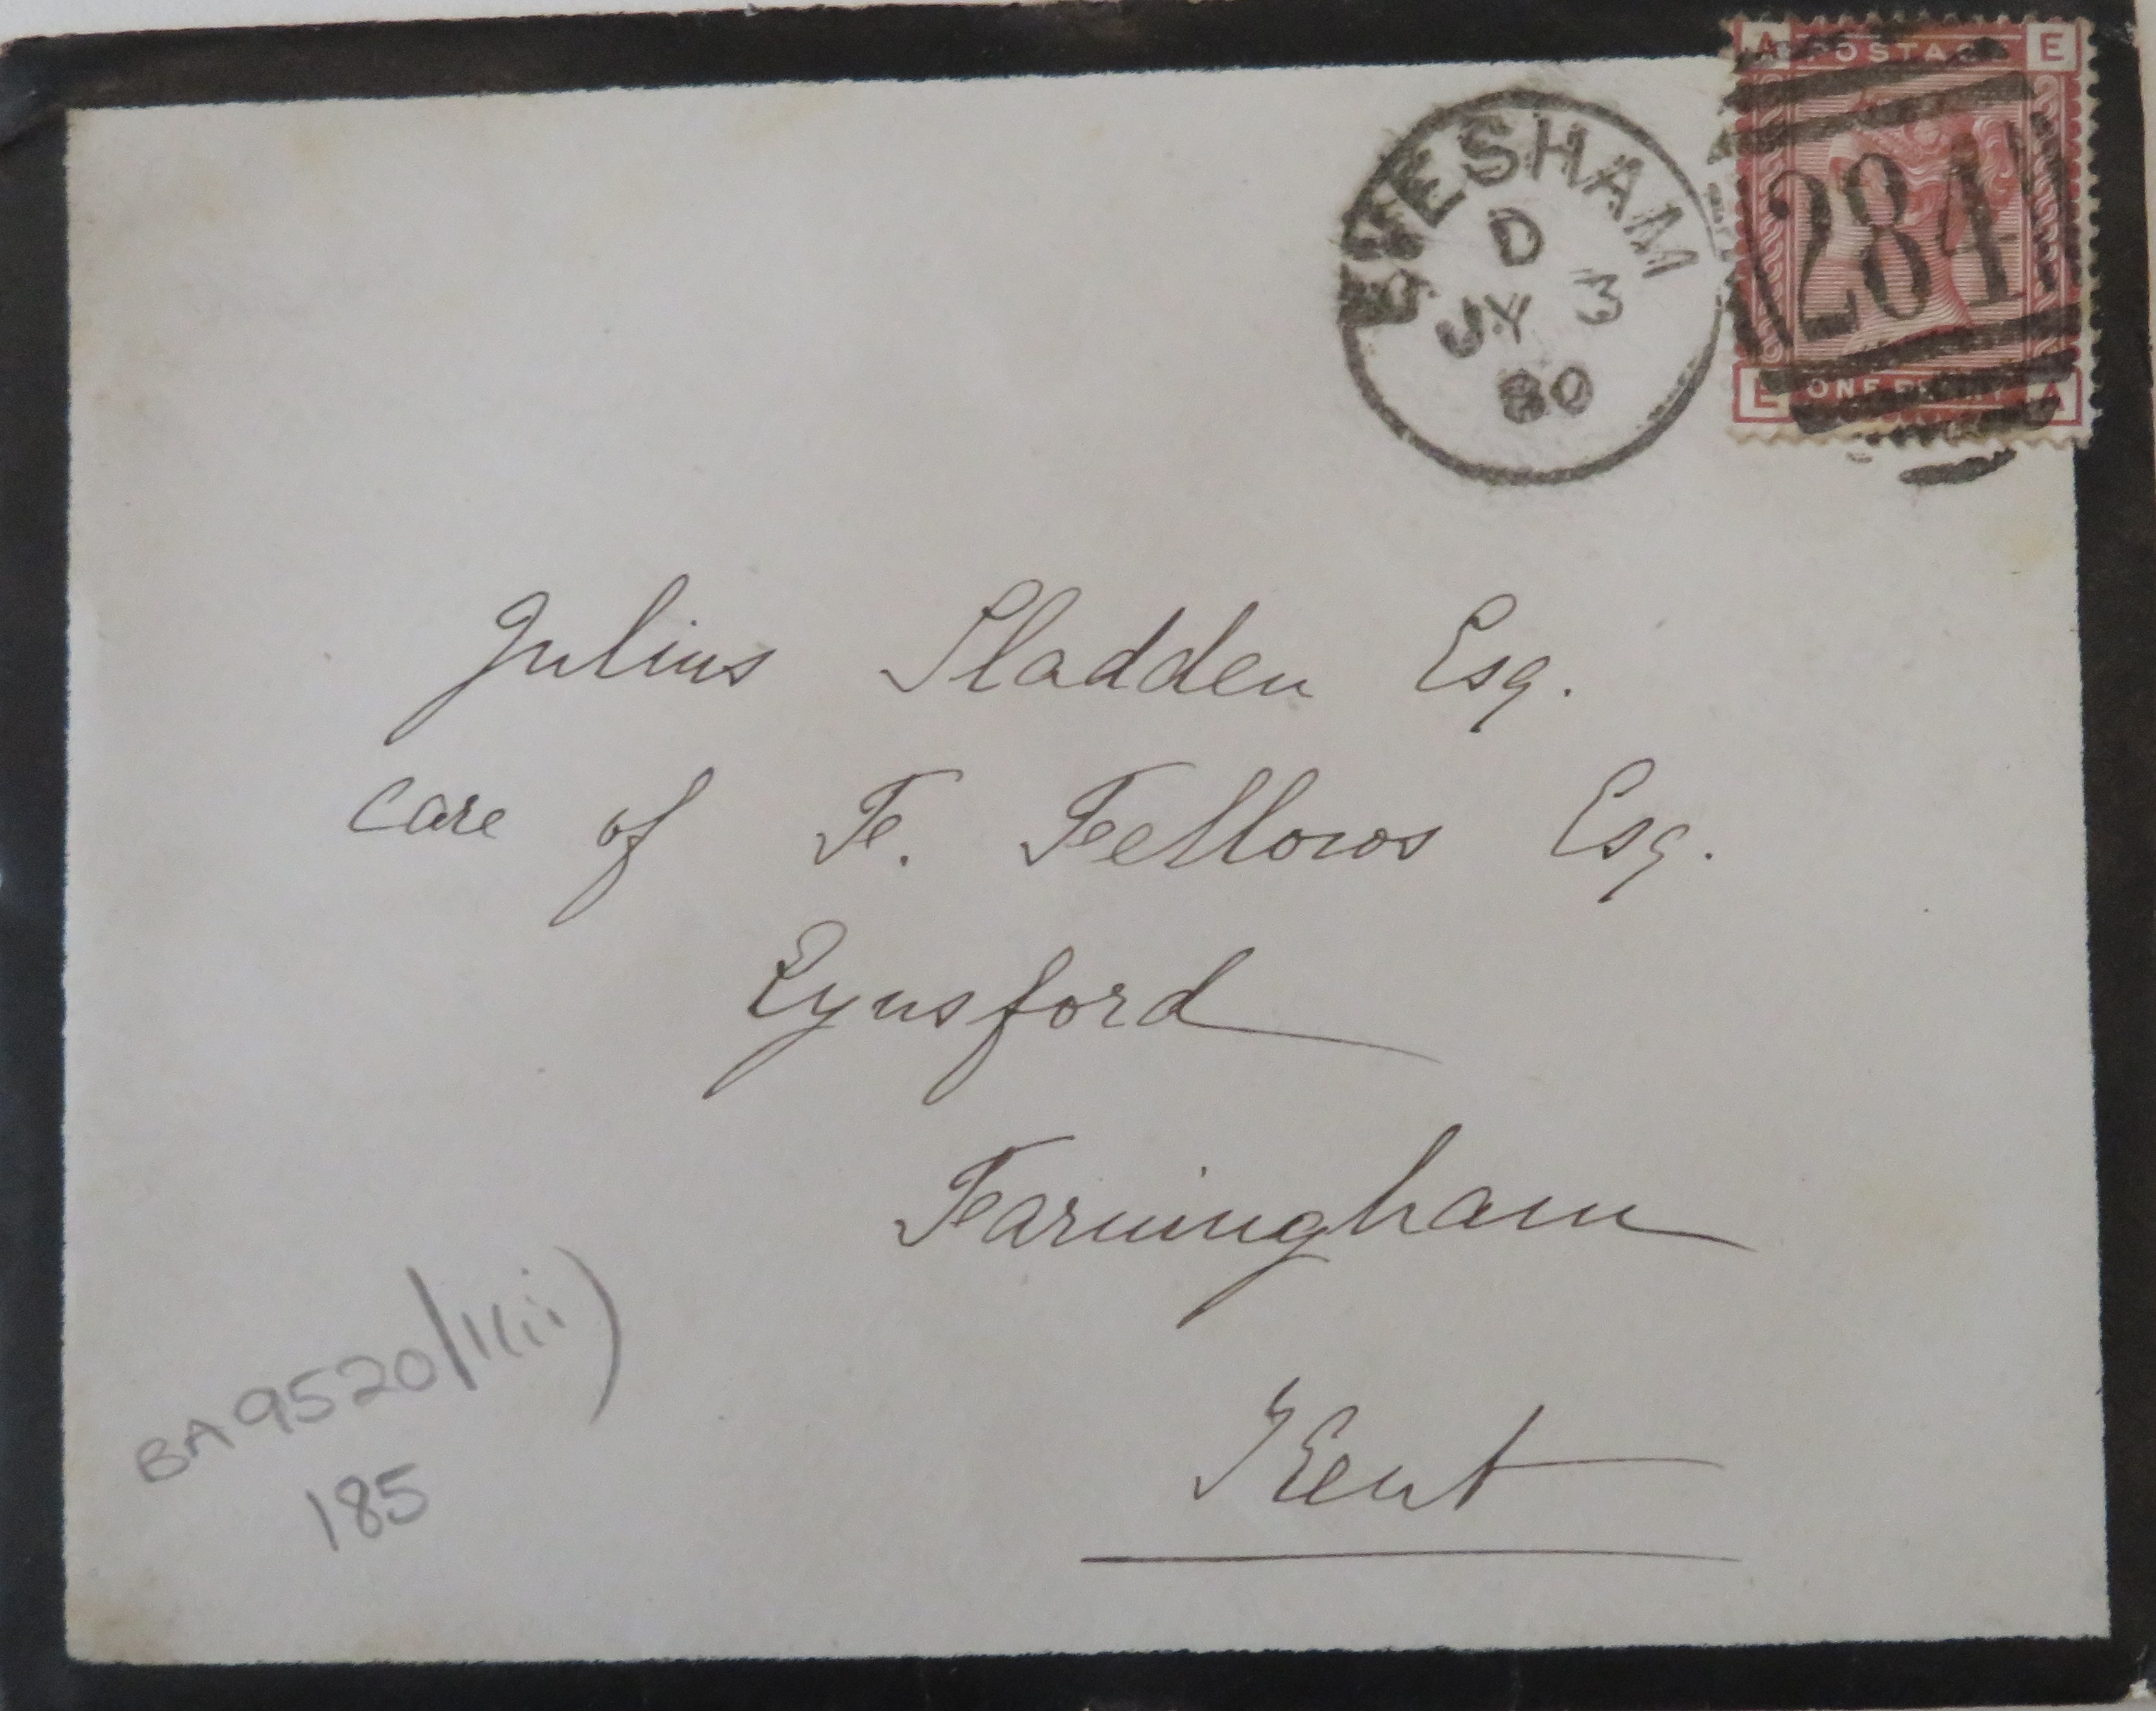 A POSTAGE E
EVESHAM
D
JY 3
80
284
E ONE PENNY A
Julius Sladden Esq.
care of F. Fellows Esq.
Eynsford
Farningham
Kent
BA9520/1(ii)
185